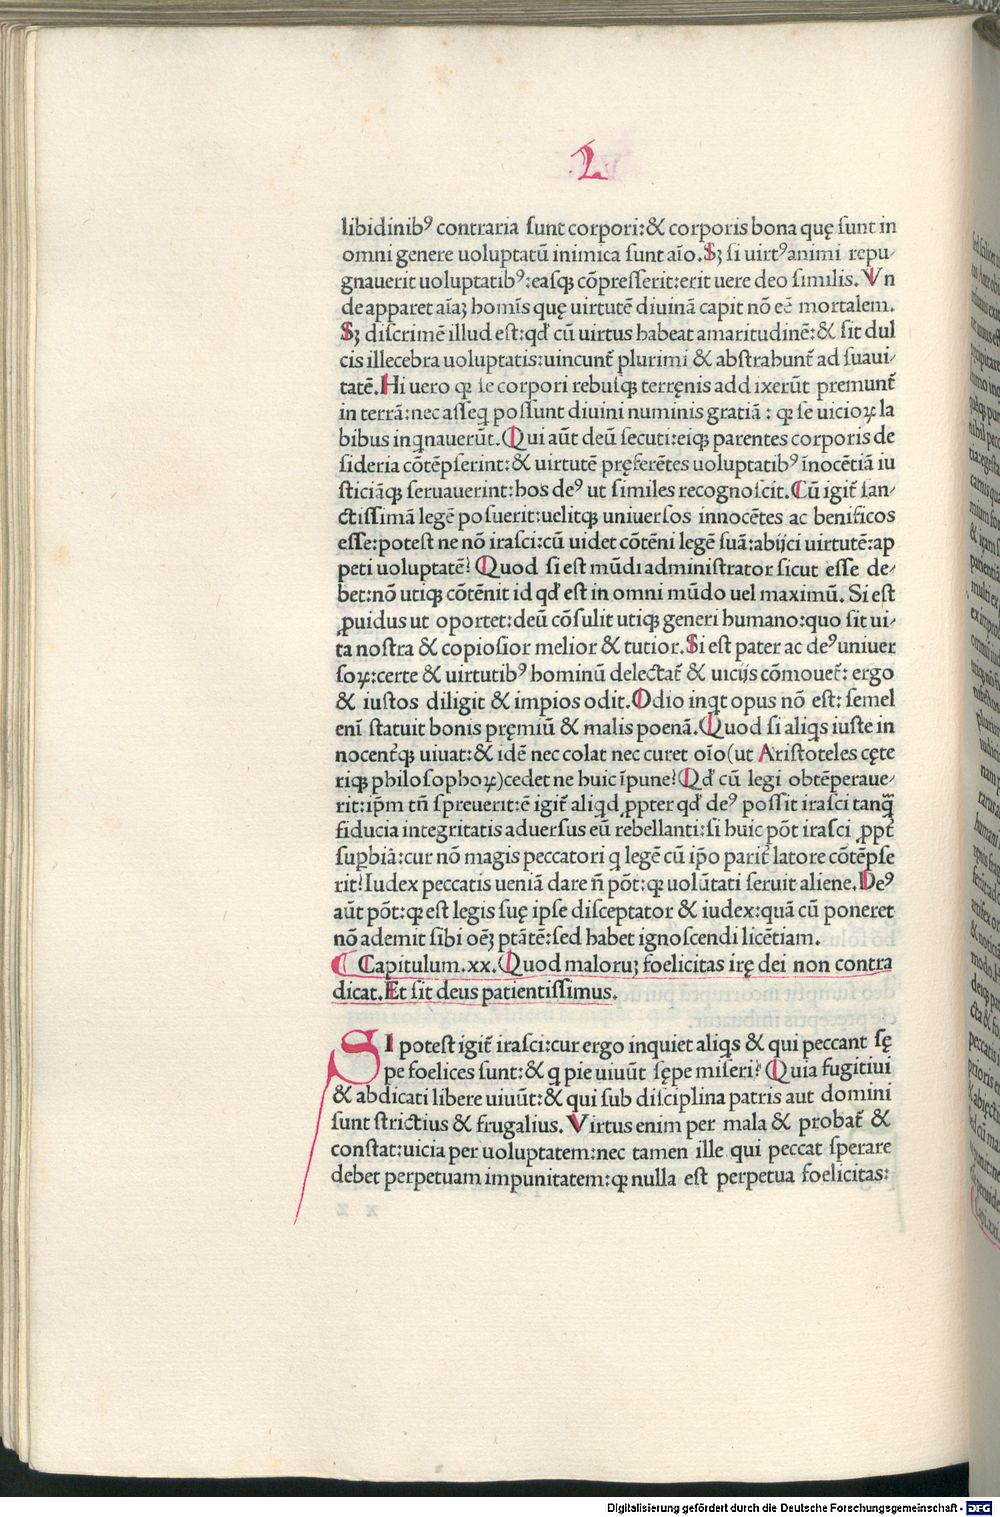 L
libidinibꝰ contraria ſunt corpori:& corporis bona quę ſunt in
omni genere uoluptatū inimica ſunt aīo.Sꝫ ſi uirtꝰ animi repu⸗
gnauerit uoluptatibꝰ:eaſqꝫ cōpreſſerit:erit uere deo ſimilis. Vn
de apparet aīaꝫ homīs quę uirtutē diuinā capit nō eē mortalem.
Sꝫ diſcrimē illud eſt:qđ cū uirtus habeat amaritudinē:& ſit dul
cis illecebra uoluptatis:uincunt̄ plurimi & abſtrahunt̄ ad ſuaui⸗
tatē.Hi uero qꝛ ſe corpori rebuſqꝫ terręnis addixerūt premunt̄
in terrā:nec aſſeq̄ poſſunt diuini numinis gratiā : qꝛ ſe uicioꝝ la
bibus inqͥnauerūt.Qui aūt deū ſecuti:eiqꝫ parentes corporis de
ſideria cōtēpſerint:& uirtutē pręferētes uoluptatibꝰ īnocētiā iu
ſticiāqꝫ ſeruauerint:hos deꝰ ut ſimiles recognoſcit.Cū igit̄ ſan⸗
ctiſſimā legē poſuerit:uelitqꝫ uniuerſos innocētes ac benificos
eſſe:poteſt ne nō iraſci:cū uidet cōtēni legē ſuā:abijci uirtutē:ap
peti uoluptatē? Quod ſi eſt mūdi adminiſtrator ſicut eſſe de⸗
bet:nō utiqꝫ cōtēnit id qđ eſt in omni mūdo uel maximū. Si eſt
ꝓuidus ut oportet:deū cōſulit utiqꝫ generi humano:quo ſit ui⸗
ta noſtra & copioſior melior & tutior.Si eſt pater ac deꝰ uniuer
ſoꝝ:certe & uirtutibꝰ hominū delectat̄ & uicijs cōmouet̄: ergo
& iuſtos diligit & impios odit.Odio inqͥt opus nō eſt: ſemel
enī ſtatuit bonis pręmiū & malis poenā.Quod ſi aliqͥs iuſte in
nocent̓qꝫ uiuat:& idē nec colat nec curet oīo(ut Ariſtoteles cęte
riqꝫ philoſophoꝝ)cedet ne huic īpune?Qđ cū legi obtēperaue⸗
rit:ip̄m tn̄ ſpreuerit:ē igit̄ aliqͥd ꝓpter qđ deꝰ poſſit iraſci tanqͣꝫ
fiducia integritatis aduerſus eū rebellanti:ſi huic pōt iraſci ꝓpt̓
ſuꝑbiā:cur nō magis peccatori q̄ legē cū ip̄o parit̓ latore cōtēpſe
rit?Iudex peccatis ueniā dare n̄ pōt:qꝛ uolūtati ſeruit aliene.Deꝰ
aūt pōt:qꝛ eſt legis ſuę ipſe diſceptator & iudex:quā cū poneret
nō ademit ſibi oēꝫ ptātē:ſed habet ignoſcendi licētiam.
Capitulum.xx.Quod maloruꝫ foelicitas irę dei non contra
dicat.Et ſit deus patientiſſimus.
SI poteſt igit̄ iraſci:cur ergo inquiet aliqͥs & qui peccant ſę
pe foelices ſunt:& q̄ pie uiuūt ſępe miſeri? Quia fugitiui
& abdicati libere uiuūt:& qui ſub diſciplina patris aut domini
ſunt ſtrictius & frugalius. Virtus enim per mala & probat̄ &
conſtat:uicia per uoluptatem:nec tamen ille qui peccat ſperare
debet perpetuam impunitatem:qꝛ nulla eſt perpetua foelicitas:
Digitalisierung gefördert durch die Deutsche Forschungsgemeinschaft - DFG